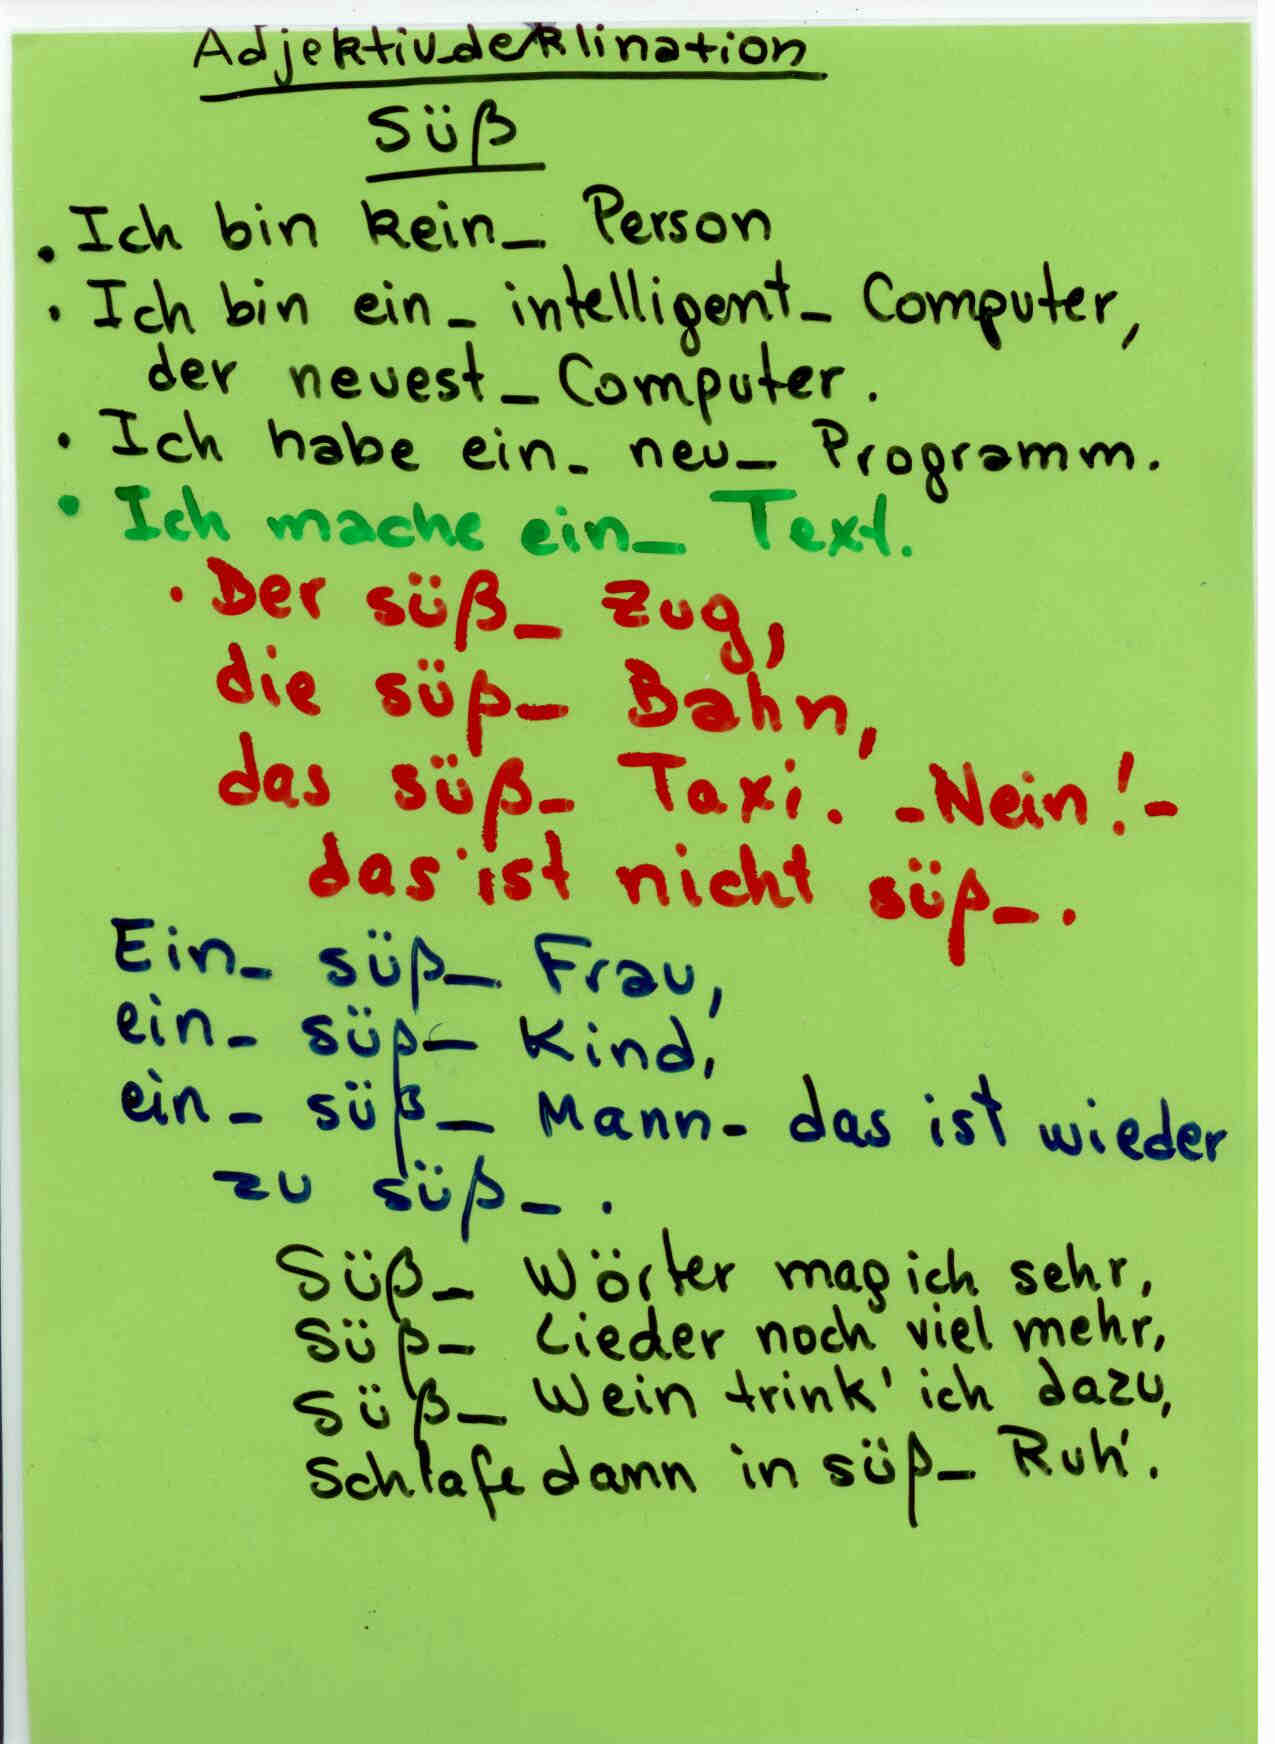 Adjektivdeklination
Süß
. Ich bin kein_ Person
. Ich bin ein_ intelligent_ Computer,
der neuest_ Computer.
. Ich habe ein_ neu_ Programm.
. Ich mache ein_ Text.
. Der süß_ Zug,
die süß_ Bahn,
das süß_ Taxi. -Nein!-
das ist nicht süß_.
Ein_ süß_ Frau,
ein_ süß_ Kind,
ein_ süß_ Mann- das ist wieder
zu süß_.
Süß_ Wörter mag ich sehr,
Süß_ Lieder noch viel mehr,
Süß_ Wein trink' ich dazu,
Schlafe dann in süß_ Ruh'.